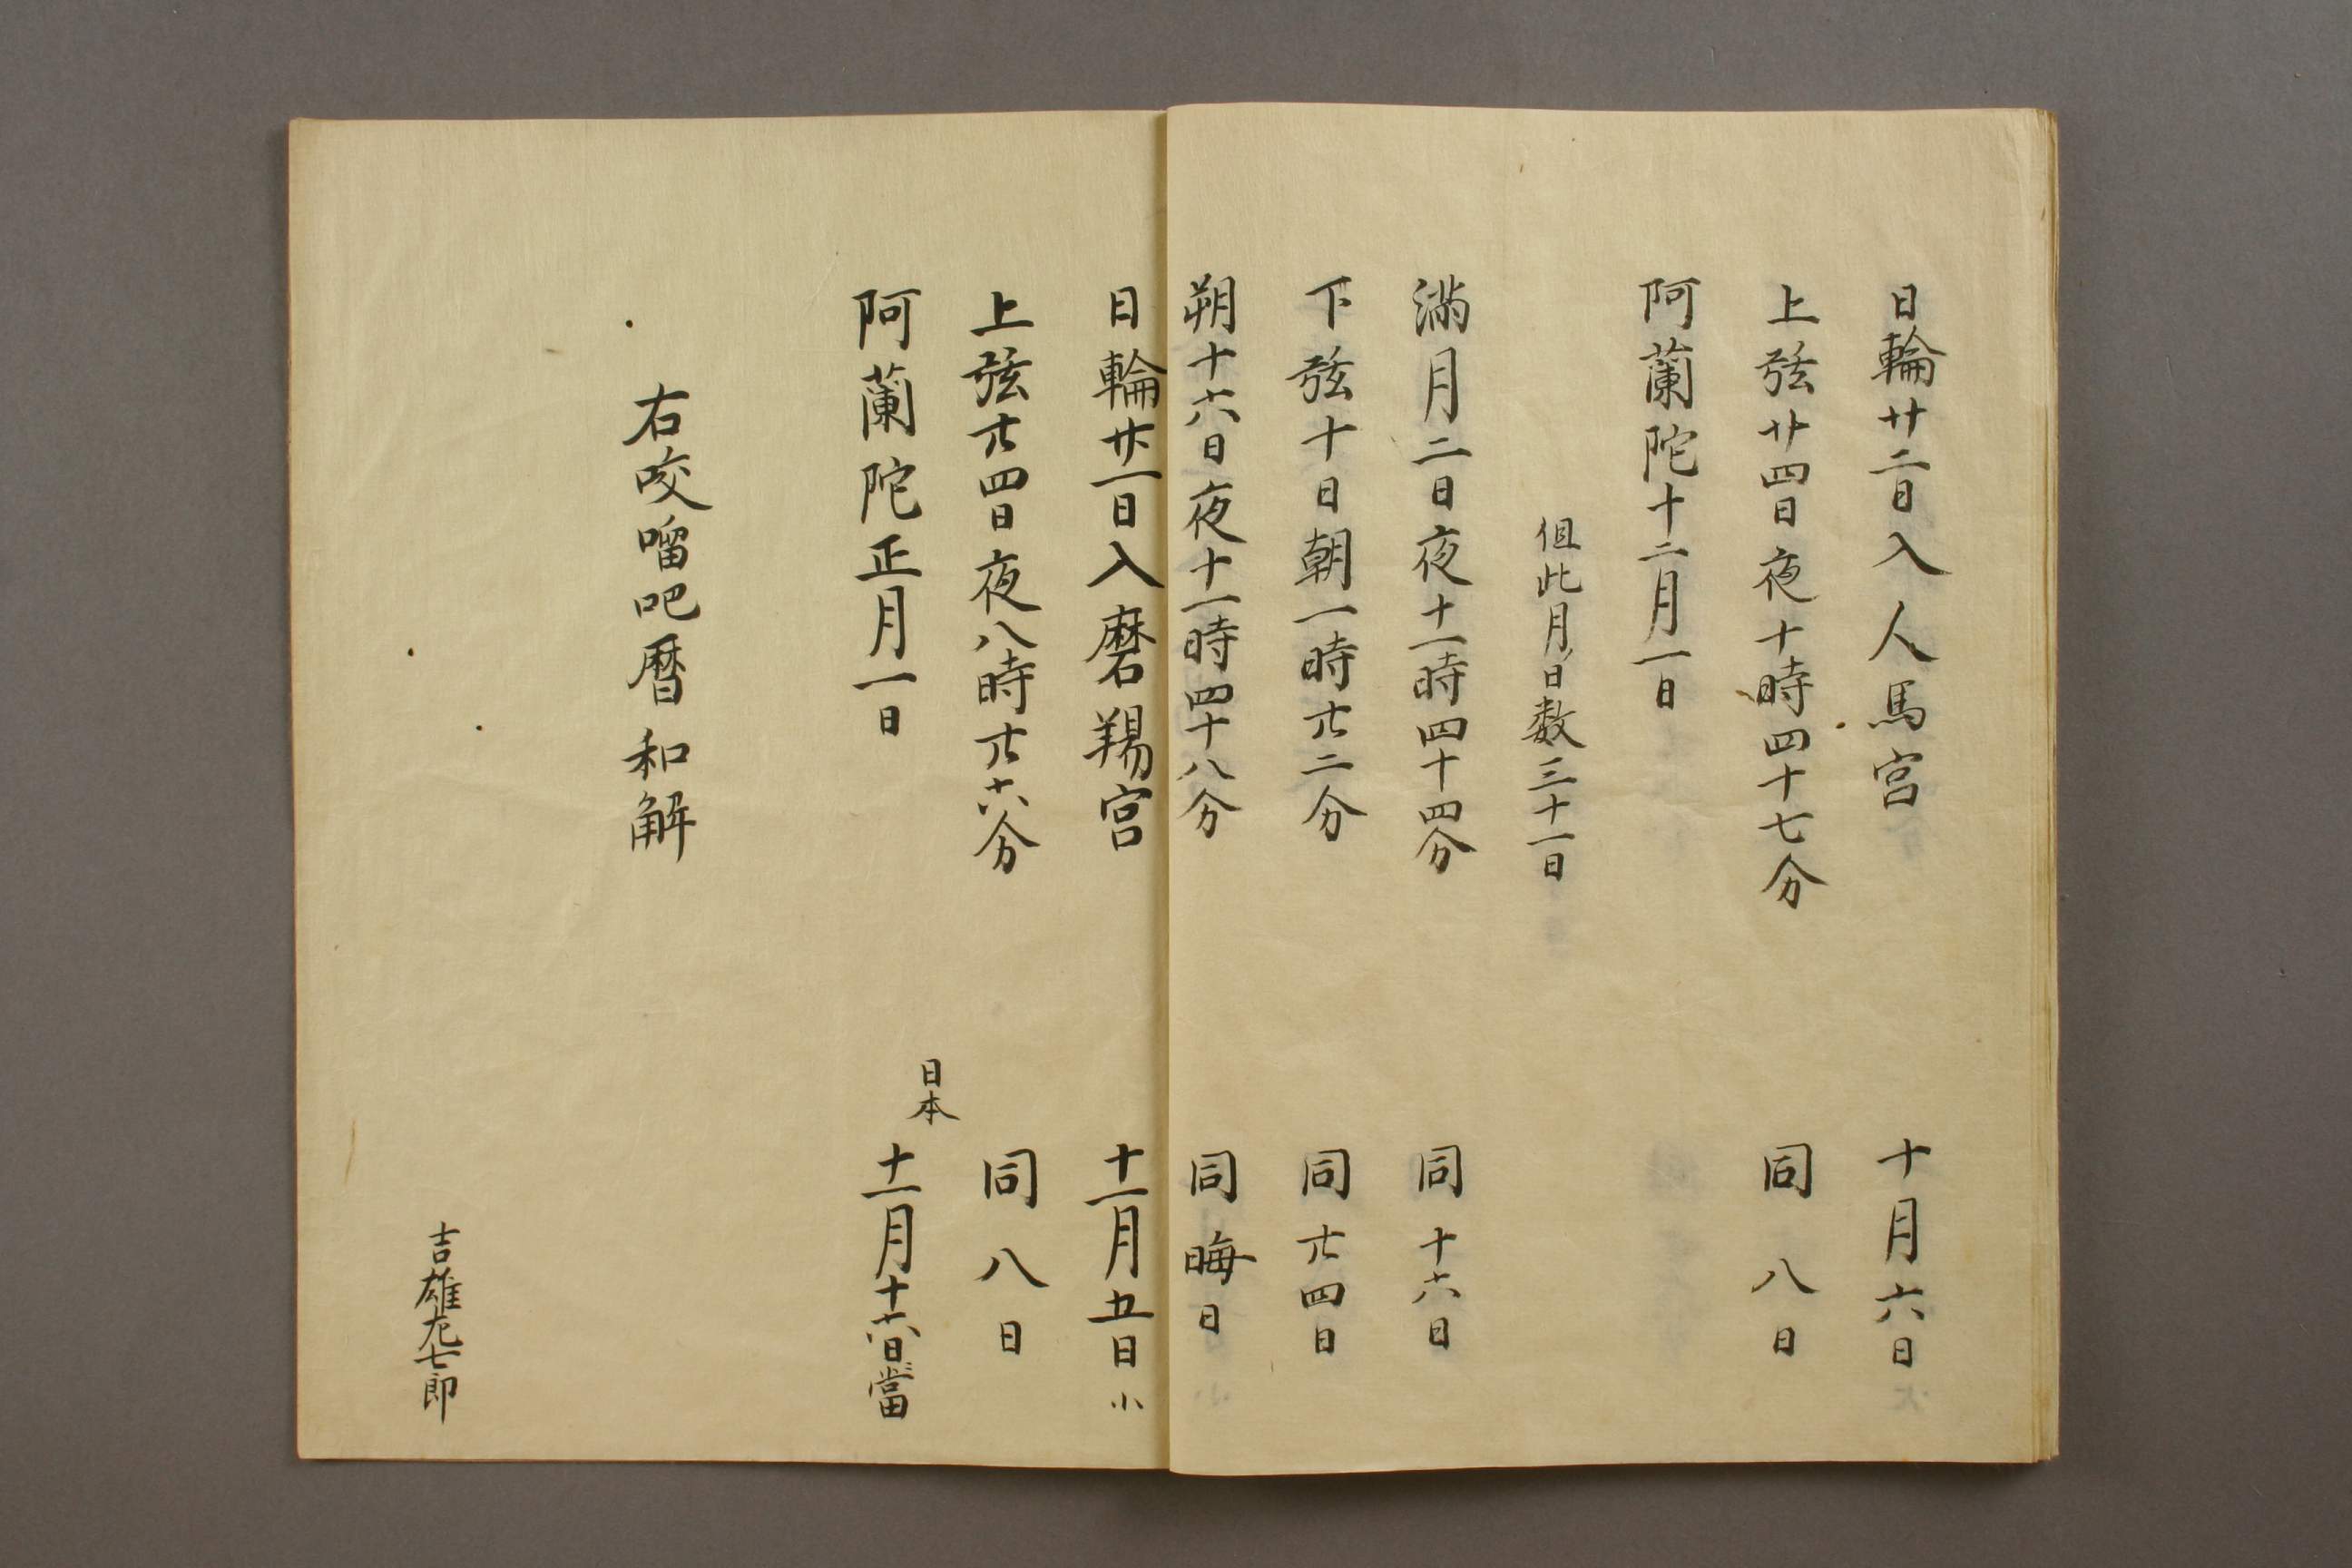 日輪廿二日入人馬宮 十月六日
上弦廿四日夜十時四十七分 同八日
阿蘭陀十二月一日
但此月ノ日数三十一日
満月二日夜十一時四十四分 同十六日
下弦十日朝一時廿二分 同廿四日
朔十六日夜十一時四十八分 同晦日
日輪廿一日入磨羯宮 十一月五日小
上弦廿四日夜八時廿六分 同八日
阿蘭陀正月一日 日本十一月十六日ニ當
右咬𠺕吧暦和解
吉雄左七郎